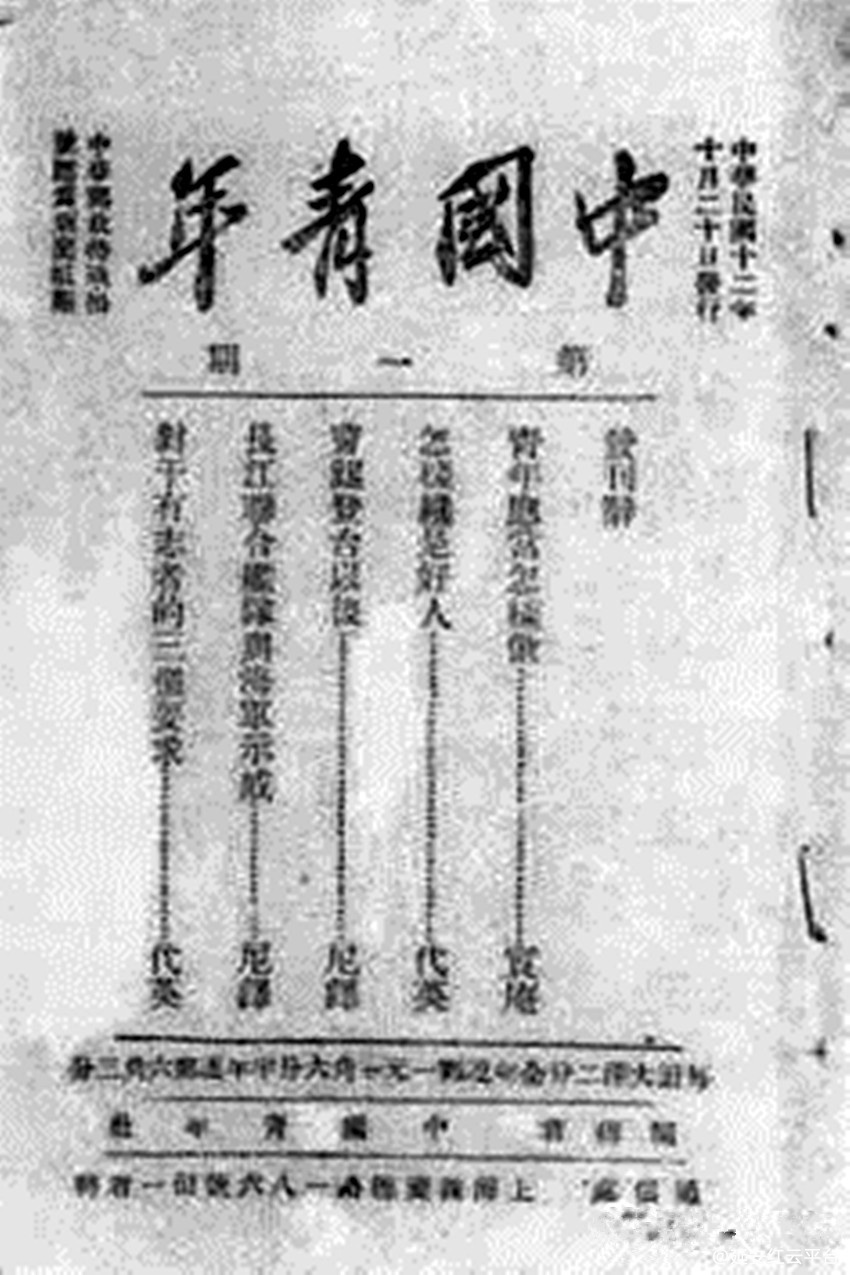 中華民國十二年
十月二十日發行
中國青年
中華郵政特准掛
號認爲新聞紙類
第一期
發刊辭
青年應當怎樣做……實庵
怎樣纔是好人……代英
曹錕登台以後……尼鐸
長江聯合艦隊與海軍示威……尼鐸
對于有志者的三個要求……代英
每冊大洋二分全年連郵一元一角六分半年連郵六角三分
編輯者 中國青年社
通信處 上海 路一八六號 一君轉